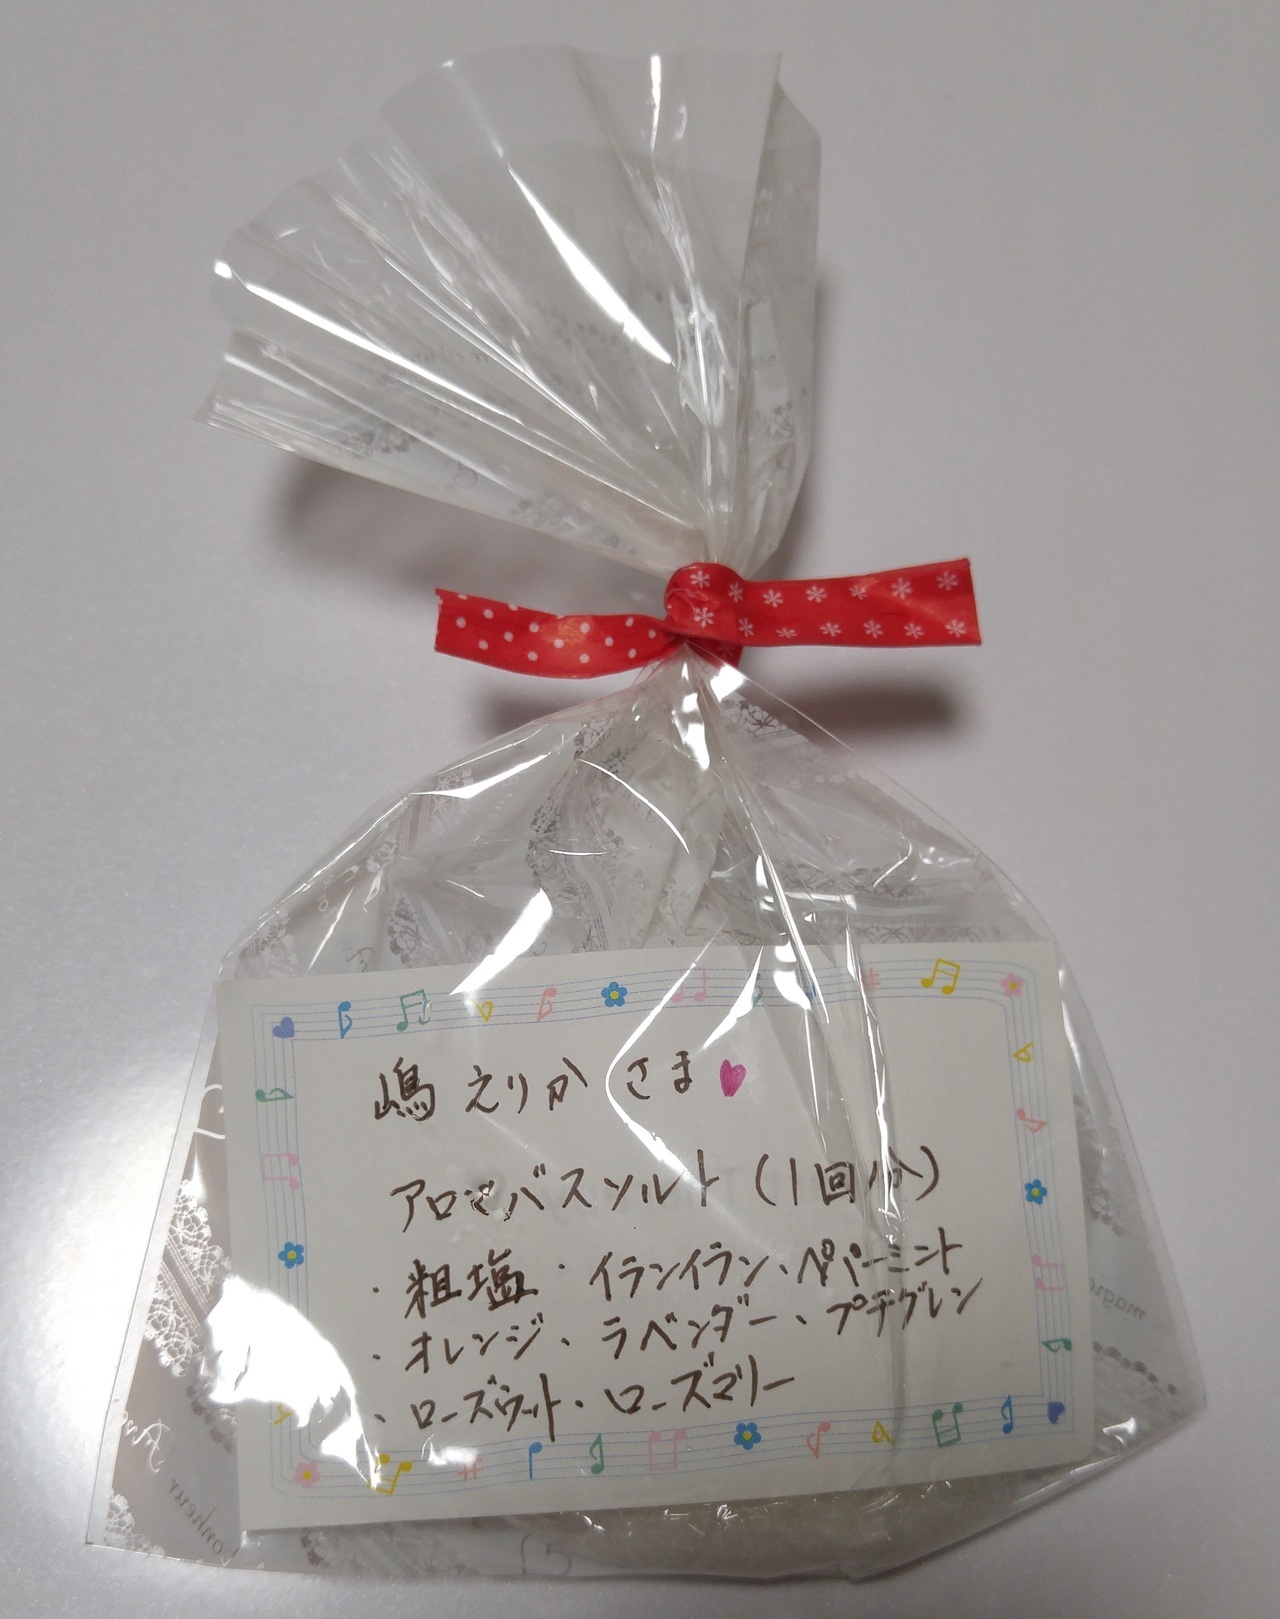 嶋 えりか さま♥
アロマバスソルト (1回分)
・粗塩・イランイラン、ペパーミント
・オレンジ、ラベンダー、プチグレン
・ローズウット・ローズマリー
magic
bonheur